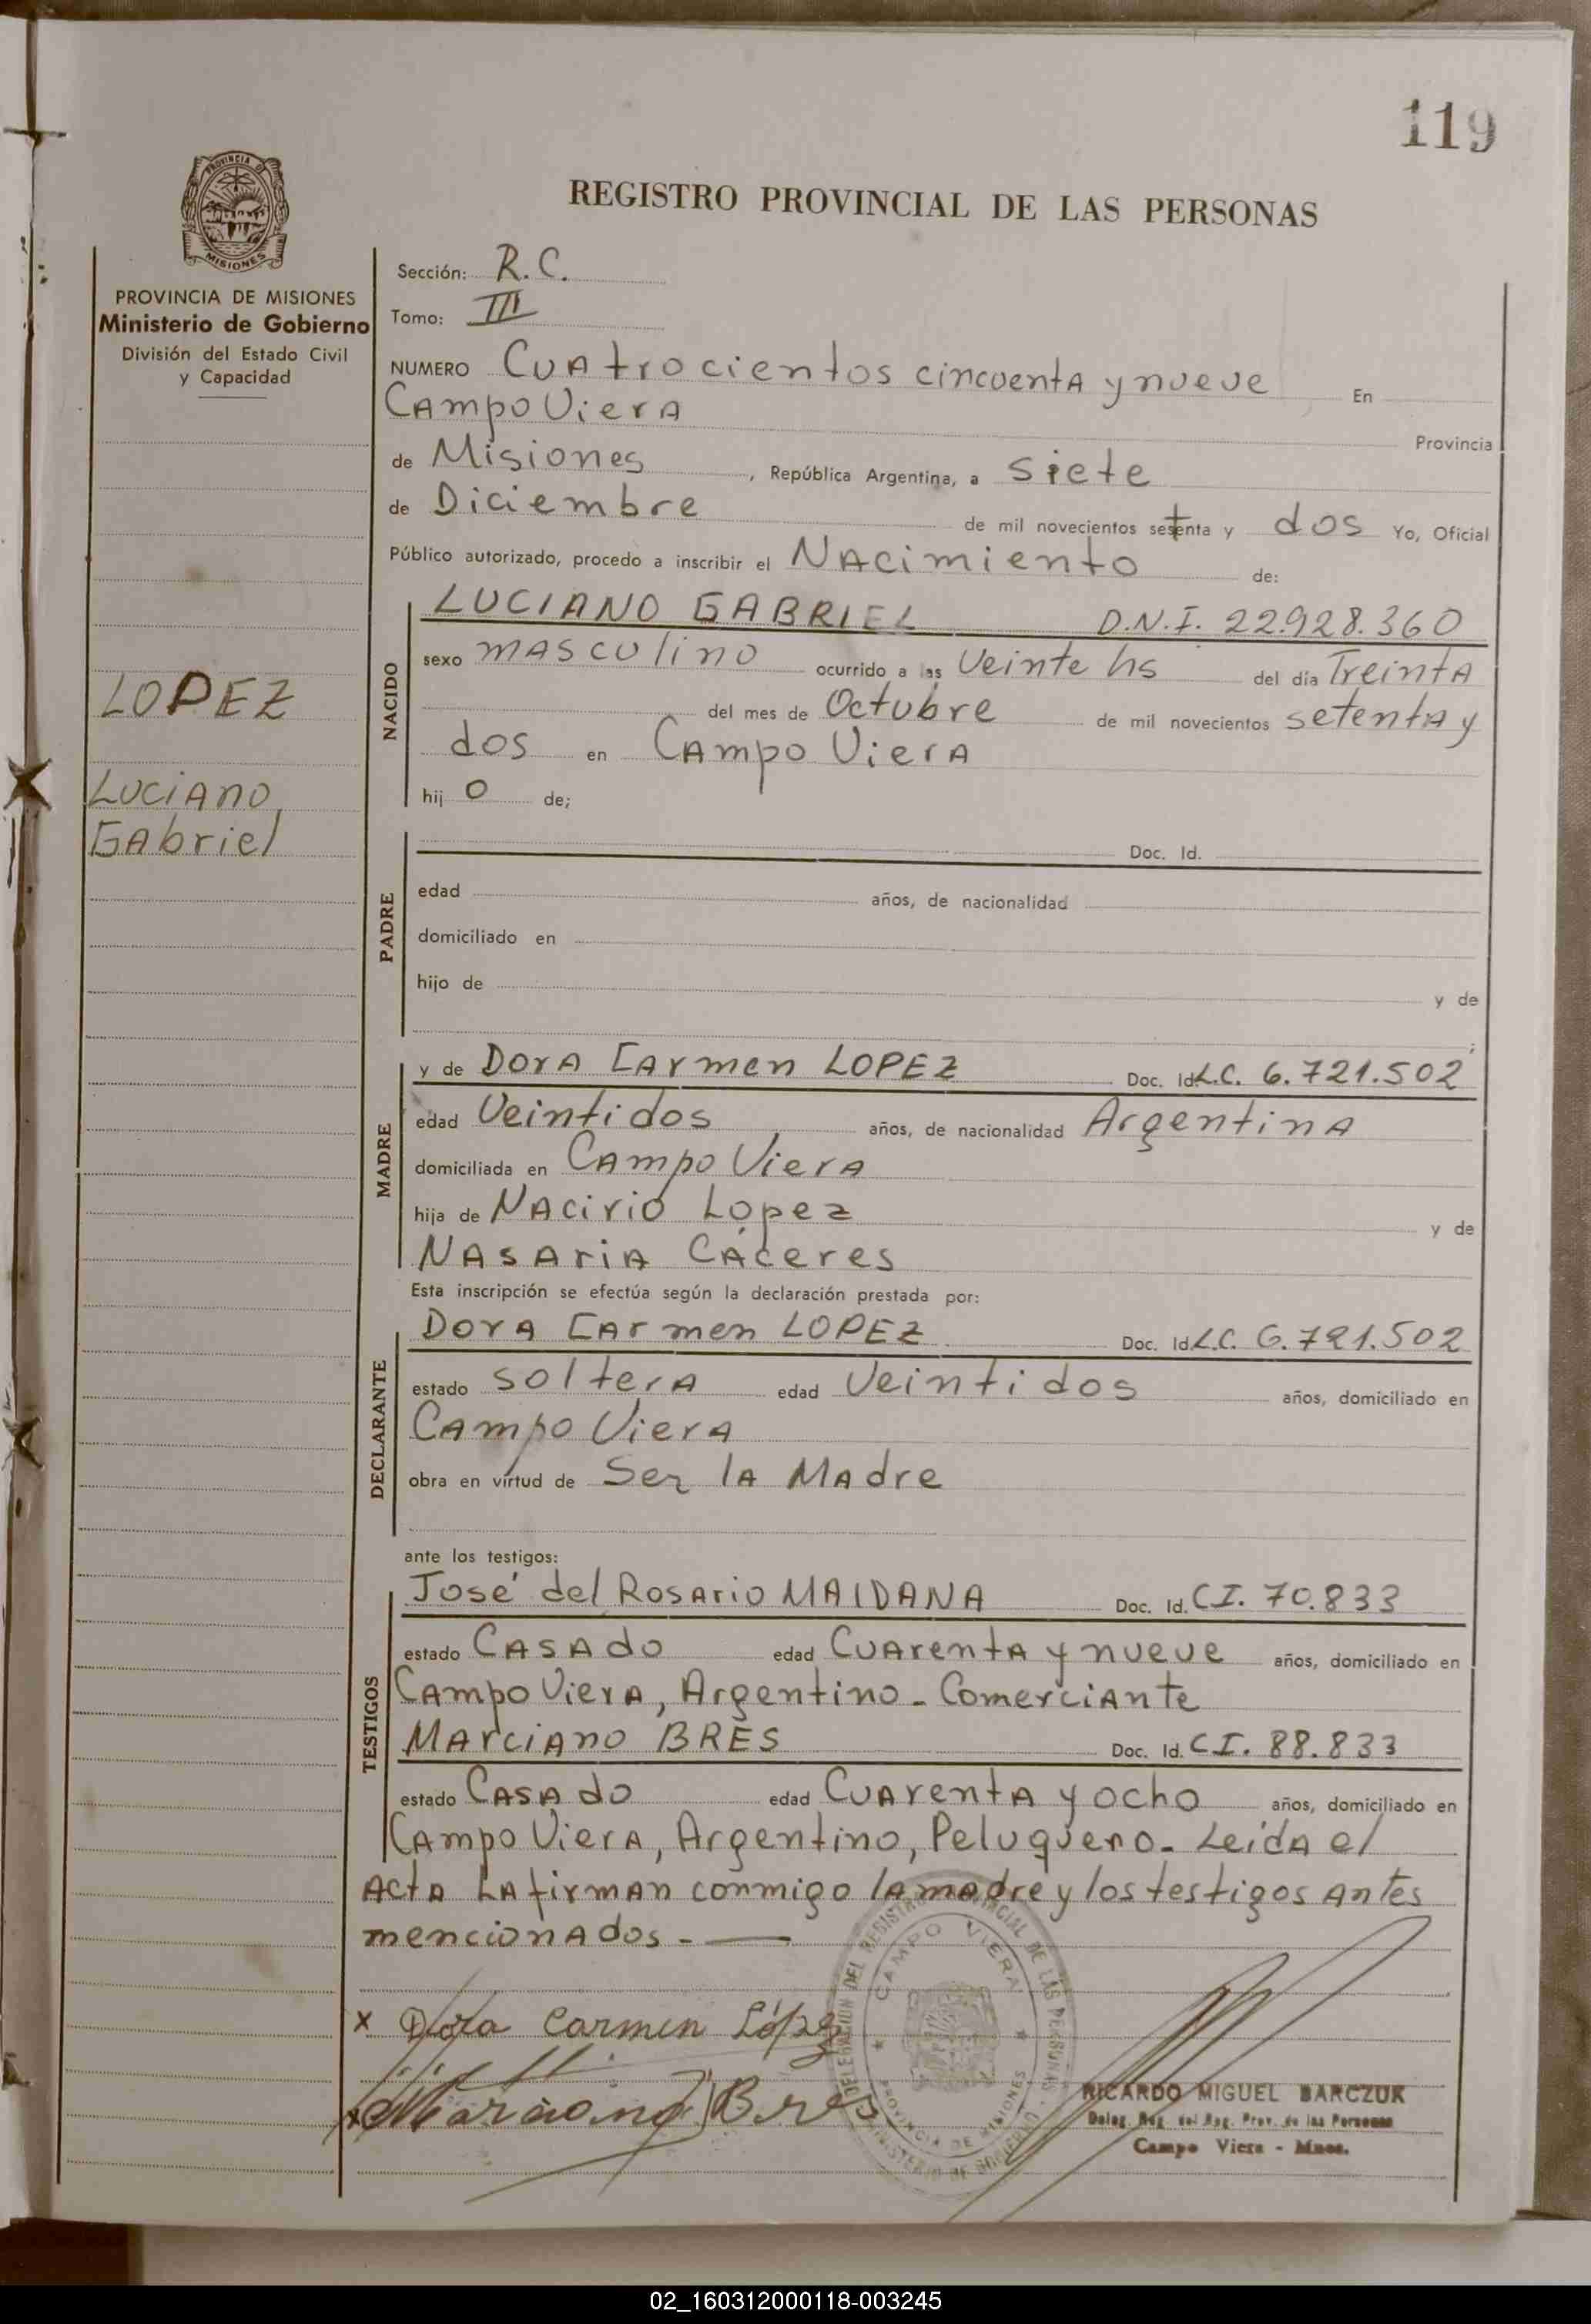 119
REGISTRO PROVINCIAL DE LAS PERSONAS
PROVINCIA DE
MISIONES
PROVINCIA DE MISIONES
Ministerio de Gobierno
División del Estado Civil
y Capacidad
LOPEZ
Luciano
Gabriel
Sección: R.C.
Tomo: III
NUMERO Cuatrocientos cincuenta y nueve En
Campo Viera Provincia
de Misiones, República Argentina, a siete
de Diciembre de mil novecientos setenta y dos Yo, Oficial
Público autorizado, procedo a inscribir el Nacimiento de:
NACIDO
LUCIANO GABRIEL D.N.I. 22.928.360
sexo masculino ocurrido a las Veinte hs del día Treinta
del mes de Octubre de mil novecientos setenta y
dos en Campo Viera
hij o de;
PADRE
Doc. Id.
edad años, de nacionalidad
domiciliado en
hijo de y de
MADRE
y de Dora Carmen LOPEZ Doc. Id. L.C. 6.721.502
edad Veintidos años, de nacionalidad Argentina
domiciliada en Campo Viera
hija de Nacirio Lopez y de
Nasaria Cáceres
Esta inscripción se efectúa según la declaración prestada por:
DECLARANTE
Dora Carmen LOPEZ Doc. Id. L.C. 6.721.502
estado soltera edad Veintidos años, domiciliado en
Campo Viera
obra en virtud de Ser la Madre
ante los testigos:
TESTIGOS
José del Rosario MAIDANA Doc. Id. CI. 70.833
estado Casado edad Cuarenta y nueve años, domiciliado en
Campo Viera, Argentino - Comerciante
Marciano BRES Doc. Id. CI. 88.833
estado Casado edad Cuarenta y ocho años, domiciliado en
Campo Viera, Argentino, Peluquero - Leída el
Acta La firman conmigo la madre y los testigos antes
mencionados -
x Dora Carmen López
x Marciano Bres
DELEGACION DEL REGISTRO PROVINCIAL DE LAS PERSONAS
CAMPO VIERA
PROVINCIA DE MISIONES
MINISTERIO DE GOBIERNO
RICARDO MIGUEL BARCZUK
Deleg. Reg. del Reg. Prov. de las Personas
Campo Viera - Mnes.
02_160312000118-003245